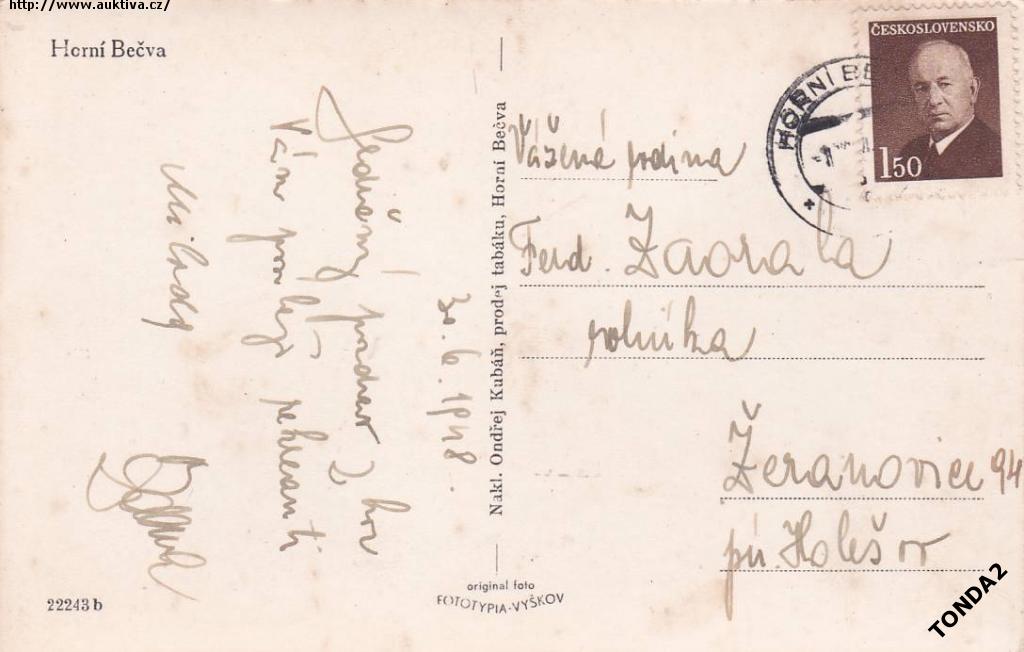 http://www.auktiva.cz/
Horní Bečva
30.6.1948.
pozdrav z hor
Vám
Nakl. Ondřej Kubáň, prodej tabáku, Horní Bečva
original foto
FOTOTYPIA-VYŠKOV
22243 b
ČESKOSLOVENSKO
1 50
HORNÍ BE
Vážená rodina
Ferd. Zaorala
rolníka
Žeranovice 94
pú. Holešov
TONDA2